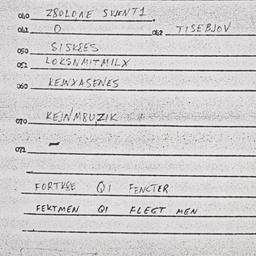 040 ZBOLONE SKWNT1
041 0 042 TISEBJOV
050 SISKEES
051 LOKSNMITMILX
060 KEJNXASENES
070 KEJNM8UZIK
071 -
FORTKEE QI FENCTER
FEKTMEN QI FLEGT MEN